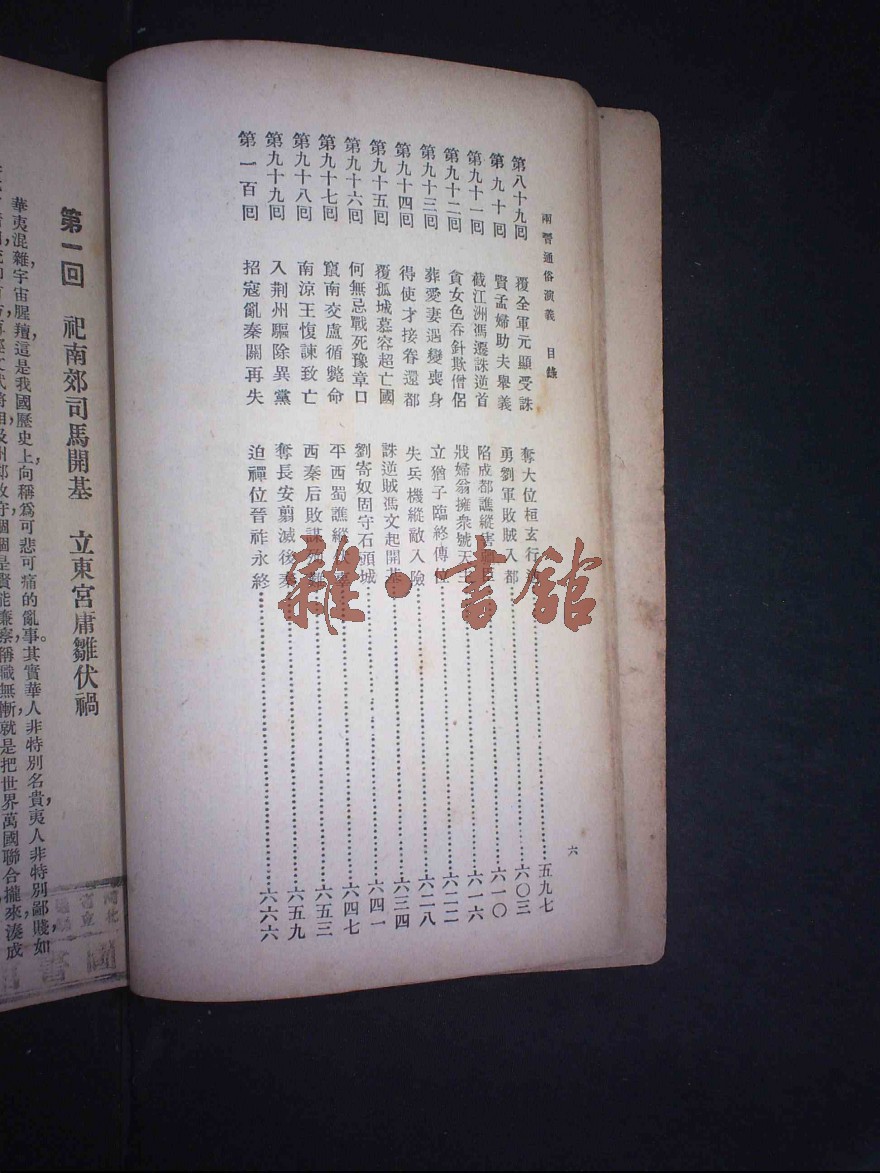 兩晉通俗演義 目錄 六
第八十九回 覆全軍元顯受誅 奪大位桓玄行 五九七
第九十回 賢孟婦助夫舉義 勇劉軍敗賊入都 六〇三
第九十一回 截江洲馮遷誅逆首 陷成都譙縱害 六一〇
第九十二回 貪女色吞針欺僧侶 戕婦翁擁衆號天王 六一六
第九十三回 葬愛妻遇變喪身 立猶子臨終傳位 六二二
第九十四回 得使才接眷還都 失兵機縱敵入險 六二八
第九十五回 覆孤城慕容超亡國 誅逆賊馮文起開基 六三四
第九十六回 何無忌戰死豫章口 劉寄奴固守石頭城 六四一
第九十七回 竄南交盧循斃命 平西蜀譙縱 六四七
第九十八回 南涼王愎諫致亡 西秦后敗謀 六五三
第九十九回 入荆州驅除異黨 奪長安翦滅後秦 六五九
第一百回 招寇亂秦關再失 迫禪位晉祚永終 六六六
雜·書館
第一回 祀南郊司馬開基 立東宮庸雛伏禍
華夷混雜，宇宙腥羶，這是我國歷史上向稱爲可悲可痛的亂事。其實華人非特別名貴，夷人非特別鄙賤，如
個個是賢能廉察，稱職無慚，就是把世界萬國聯合攏來，湊成